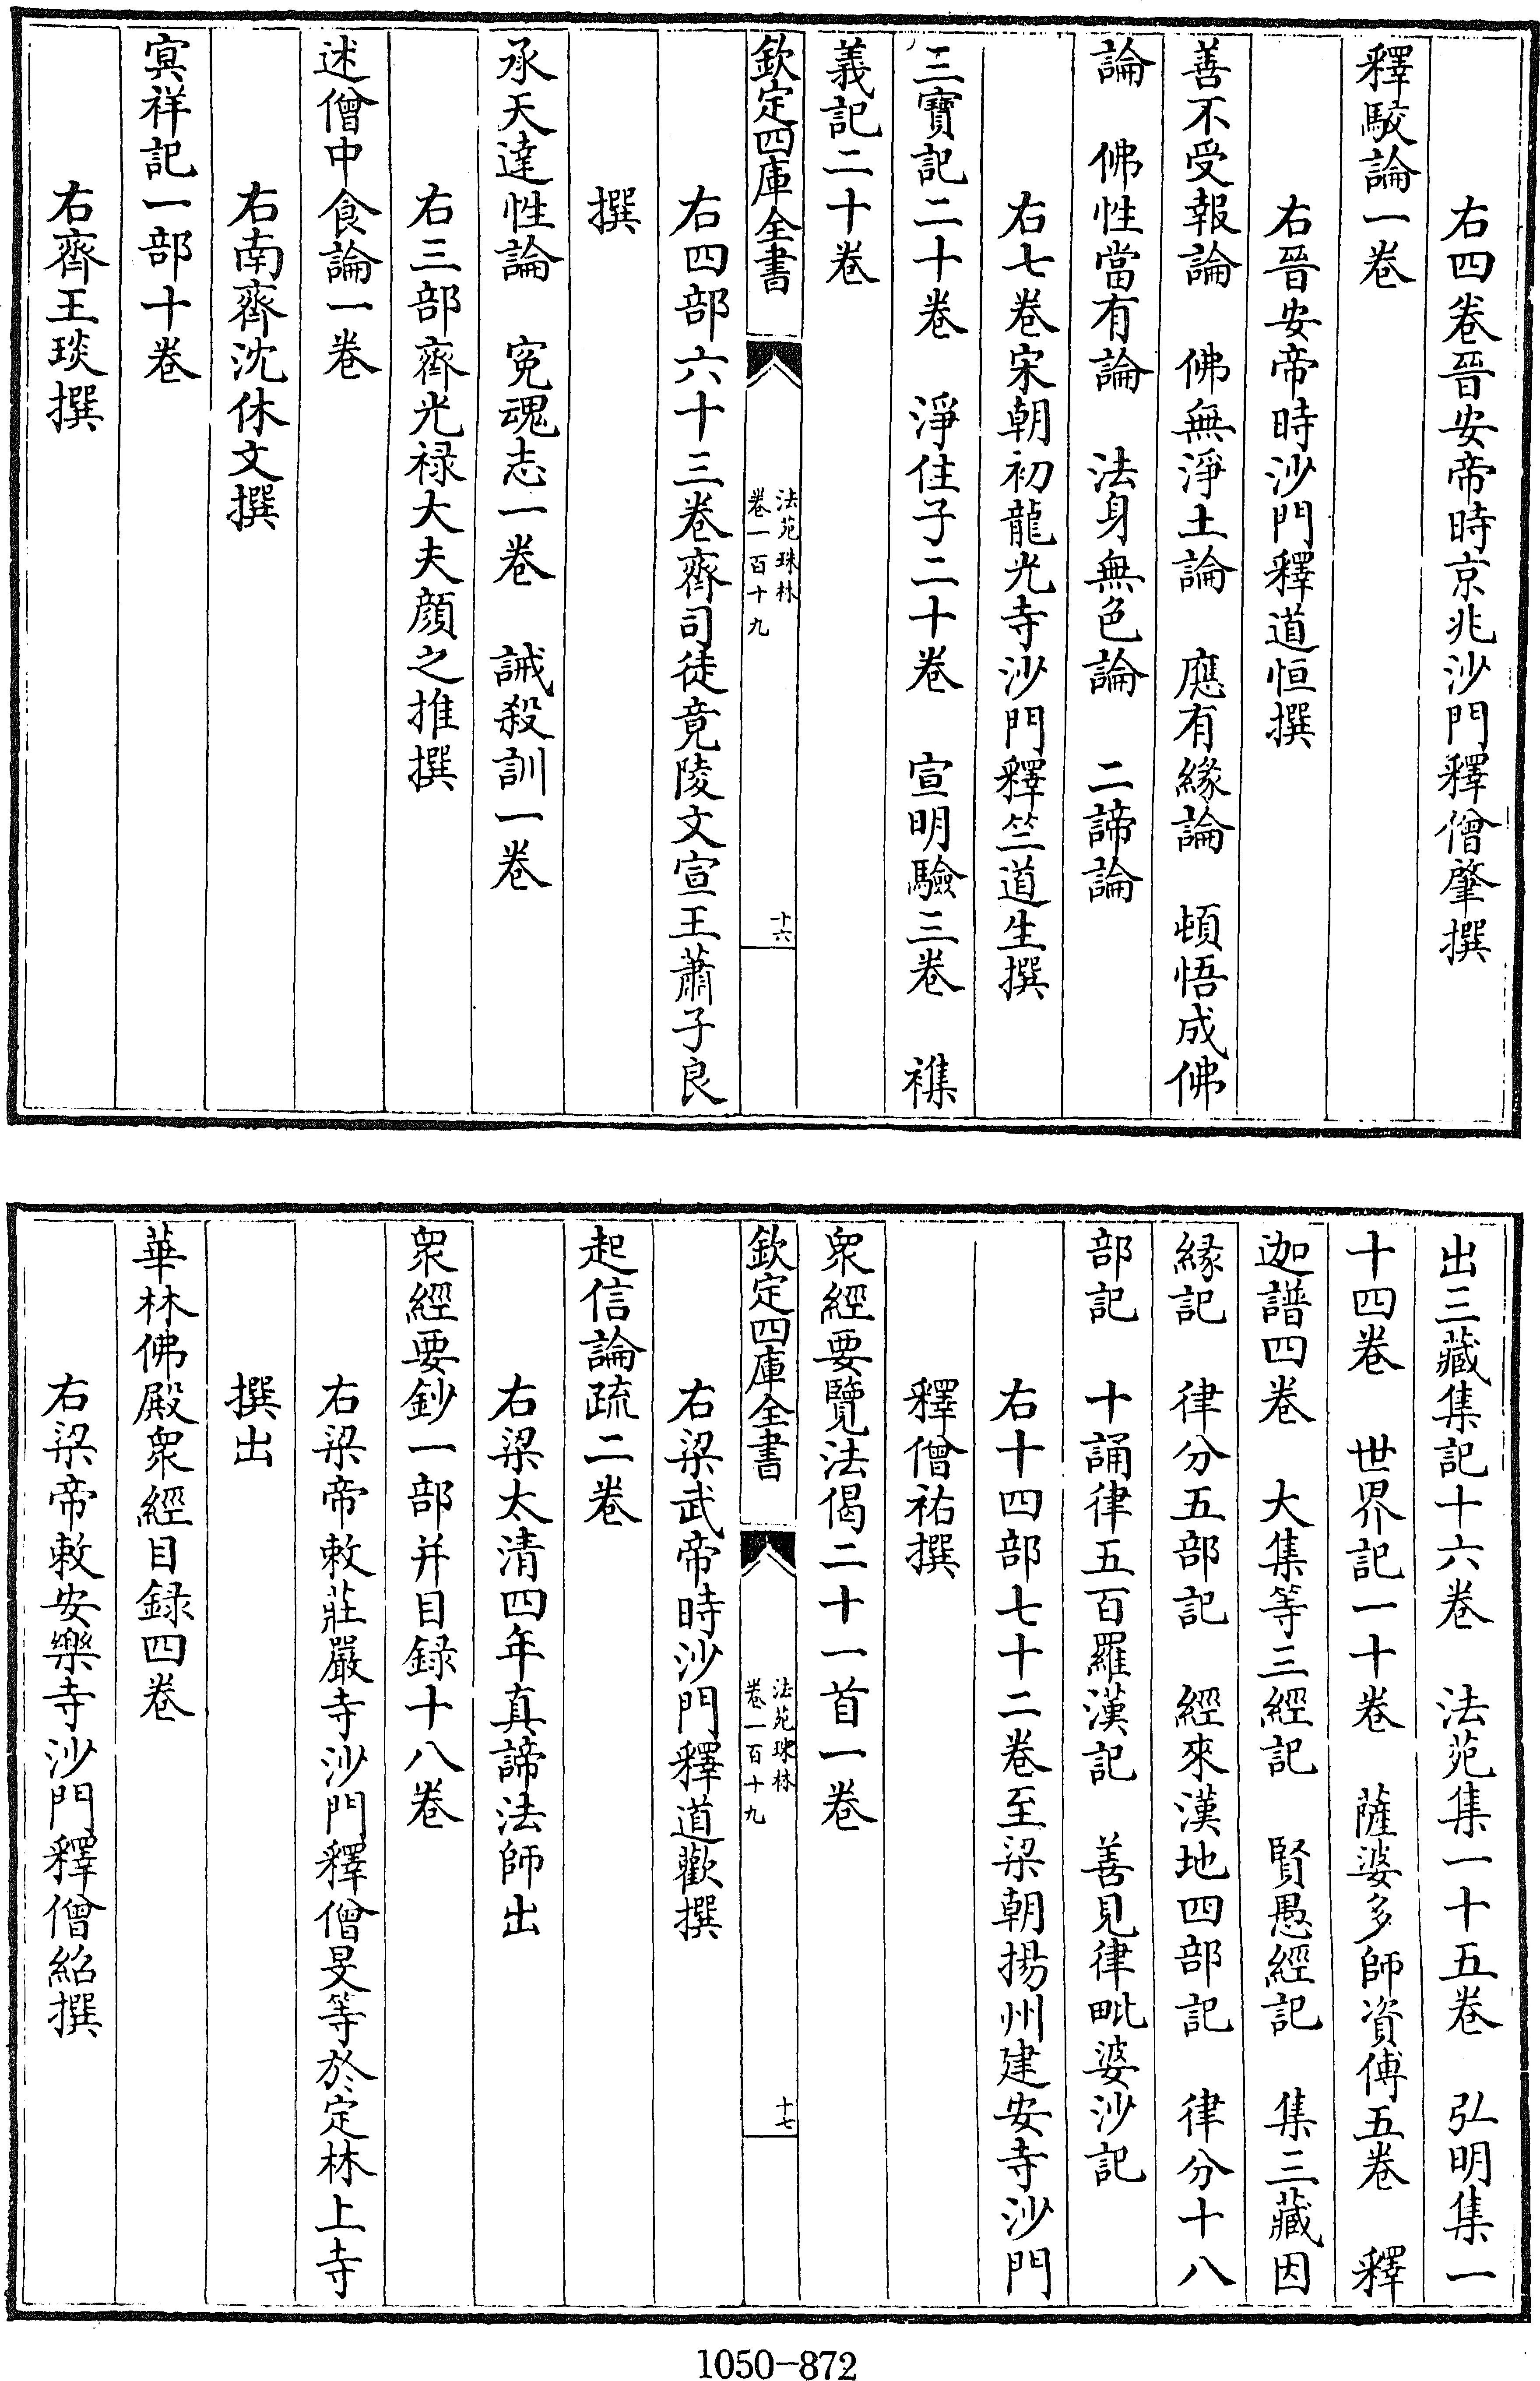 右四卷晉安帝時京兆沙門釋僧肇撰
釋駮論一卷
右晉安帝時沙門釋道恒撰
善不受報論　佛無淨土論　應有緣論　頓悟成佛
論　佛性當有論　法身無色論　二諦論
右七卷宋朝初龍光寺沙門釋竺道生撰
三寶記二十卷　淨住子二十卷　宣明驗三卷　襍
義記二十卷
欽定四庫全書
法苑珠林
卷一百十九
十六
右四部六十三卷齊司徒竟陵文宣王蕭子良
撰
承天達性論　寃魂志一卷　誡殺訓一卷
右三部齊光祿大夫顏之推撰
述僧中食論一卷
右南齊沈休文撰
冥祥記一部十卷
右齊王琰撰
出三藏集記十六卷　法苑集一十五卷　弘明集一
十四卷　世界記一十卷　薩婆多師資傅五卷　釋
迦譜四卷　大集等三經記　賢愚經記　集三藏因
緣記　律分五部記　經來漢地四部記　律分十八
部記　十誦律五百羅漢記　善見律毗婆沙記
右十四部七十二卷至梁朝揚州建安寺沙門
釋僧祐撰
衆經要覽法偈二十一首一卷
欽定四庫全書
法苑珠林
卷一百十九
十七
右梁武帝時沙門釋道歡撰
起信論疏二卷
右梁太清四年真諦法師出
衆經要鈔一部并目録十八卷
右梁帝敕莊嚴寺沙門釋僧旻等於定林上寺
撰出
華林佛殿衆經目録四卷
右梁帝敕安樂寺沙門釋僧紹撰
1050-872